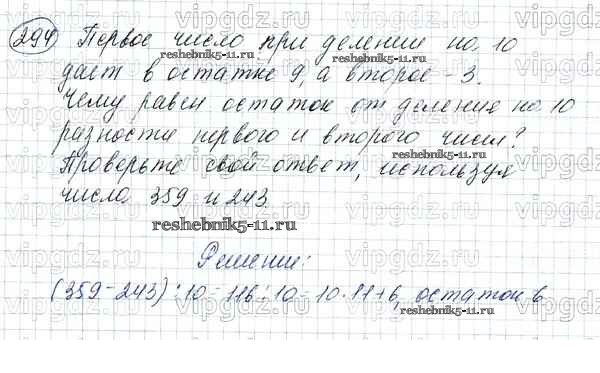 294 Первое число при делении на 10
дает в остатке 9, а второе - 3.
Чему равен остаток от деления на 10
разности первого и второго чисел?
Проверьте свой ответ, используя
числа 359 и 243.
Решение:
(359-243):10=116:10=10·11+6, остаток 6
vipgdz.ru
reshebnik5-11.ru
reshebnik5-11.ru
reshebnik5-11.ru
reshebnik5-11.ru